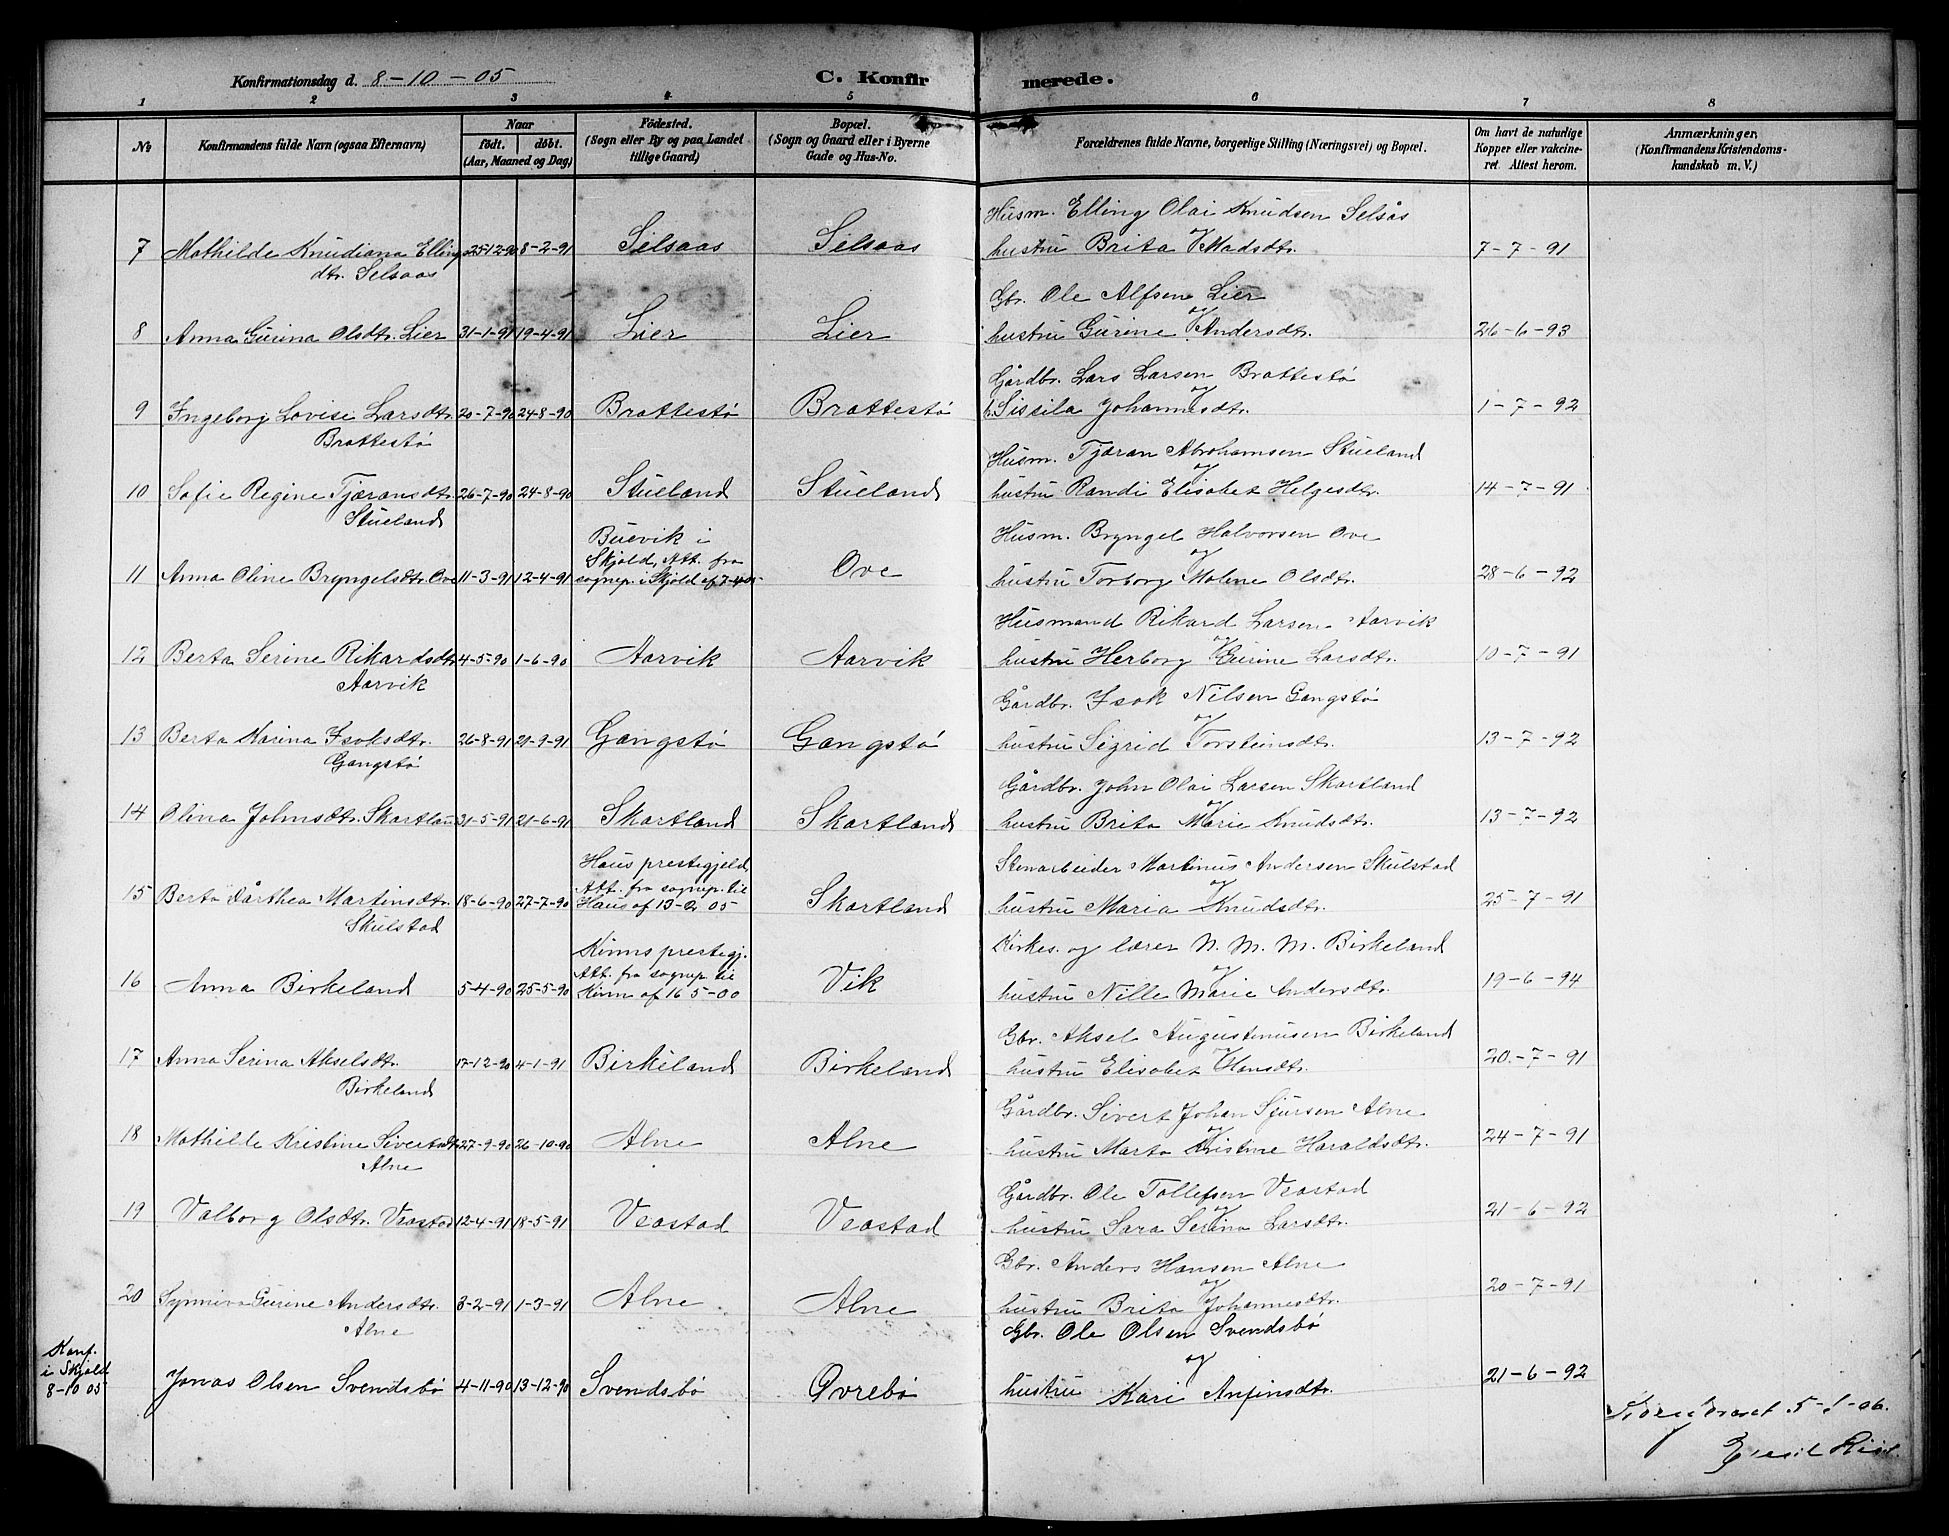 Konfirmationsdag d. 8-10-05 C. Konfir merede.
1 2 3 4 5 6 7 8
No Konfirmandens fulde Navn (ogsaa Efternavn) Naar födt. döbt. (Aar, Maaned og Dag) Födested. (Sogn eller By og paa Landet tillige Gaard) Bopæl. (Sogn og Gaard eller i Byerne Gade og Hus-No. Forældrenes fulde Navne, borgerlige Stilling (Næringsvei) og Bopæl. Om havt de naturlige Kopper eller vakcineret. Attest herom. Anmærkninger. (Konfirmandens Kristendomskundskab m. V.)
Husm. Elling Olai Knudsen Selsås
og
7 Mathilde Knudiana Ellings 25-12-90 8-2-91 Selsaas Selsaas hustru Brita Madsdtr. 7-7-91
dtr. Selsaas
Gbr. Ole Alfsen Lier
og
8 Anna Gurina Olsdtr. Lier 31-1-91 19-4-91 Lier Lier hustru Gurine Andersdtr. 26-6-93
Gårdbr. Lars Larsen Brattestø
og
9 Ingeborg Lovise Larsdtr. 20-7-90 24-8-90 Brattestø Brattestø h. Sissila Johannesdtr. 1-7-92
Brattestø
Husm. Tjæran Abrahamsen Stueland
og
10 Sofie Regine Tjæransdtr. 26-7-90 24-8-90 Stueland Stueland hustru Randi Elisabet Helgesdtr. 14-7-91
Stueland
Buevik i Husm. Bryngel Halvorsen Ove
Skjold, Att. fra og
11 Anna Oline Bryngelsdtr. Ove 11-3-91 12-4-91 sognep. i Skjold af 7-4-05 Ove hustru Torborg Malene Olsdtr. 28-6-92
Husmand Rikard Larsen Aarvik
og
12 Berta Serine Rikardsdtr. 4-5-90 1-6-90 Aarvik Aarvik hustru Herborg Gurine Larsdtr. 10-7-91
Aarvik
Gårdbr. Isak Nilsen Gangstø
og
13 Berta Karina Isaksdtr. 26-8-91 21-9-91 Gangstø Gangstø hustru Sigrid Torsteinsdtr. 13-7-92
Gangstø
Gårdbr. John Olai Larsen Skartland
og
14 Olina Johnsdtr. Skartlan 31-5-91 21-6-91 Skartland Skartland hustru Brita Marie Knudsdtr. 13-7-92
Haus prestegjeld, Stenarbeider Martinus Andersen Skulstad
Att. fra sognep. til og
15 Berta Dårthea Martinsdtr. 18-6-90 27-7-90 Haus af 13-2 05 Skartland hustru Maria Knudsdtr. 25-7-91
Skulstad
Kinns prestegj. Kirkes. og lærer N. M. M. Birkeland
Att. fra sognep. til og
16 Anna Birkeland 5-4-90 25-5-90 Kinn af 16 5-00 Vik hustru Nille Marie Andersdtr. 19-6-94
Gbr. Aksel Augustinusen Birkeland
og
17 Anna Serina Akselsdtr. 17-12-90 4-1-91 Birkeland Birkeland hustru Elisabet Hansdtr. 20-7-91
Birkeland
Gårdbr. Sivert Johan Sjursen Alne
og
18 Mathilde Kristine Sivertsdtr. 27-9-90 26-10-90 Alne Alne hustru Marta Kristine Haraldsdtr. 24-7-91
Alne
Gårdbr. Ole Tollefsen Veastad
og
19 Valborg Olsdtr. Veastad 12-4-91 18-5-91 Veastad Veastad hustru Sara Serina Larsdtr. 21-6-92
Gbr. Anders Hansen Alne
og
20 Synniva Gurine Andersdtr. 3-2-91 1-3-91 Alne Alne hustru Brita Johannesdtr. 20-7-91
Alne
Gbr. Ole Olsen Svendsbø
Konf.
i Skjold og
8-10 05 Jonas Olsen Svendsbø 4-11-90 13-12-90 Svendsbø Øvrebø hustru Kari Anfinsdtr. 21-6-92
5-1-06.